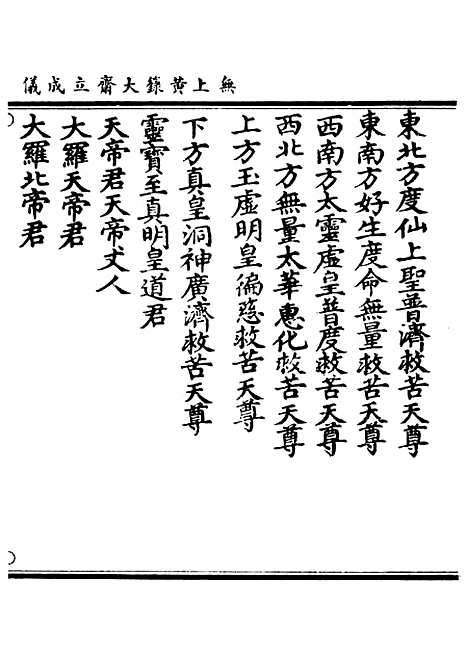 無上黃籙大齋立成儀
東北方度仙上聖普濟救苦天尊
東南方好生度命無量救苦天尊
西南方太靈虛皇普度救苦天尊
西北方無量太華惠化救苦天尊
上方玉虛明皇偏慈救苦天尊
下方真皇洞神廣濟救苦天尊
靈寶至真明皇道君
天帝君天帝丈人
大羅天帝君
大羅北帝君